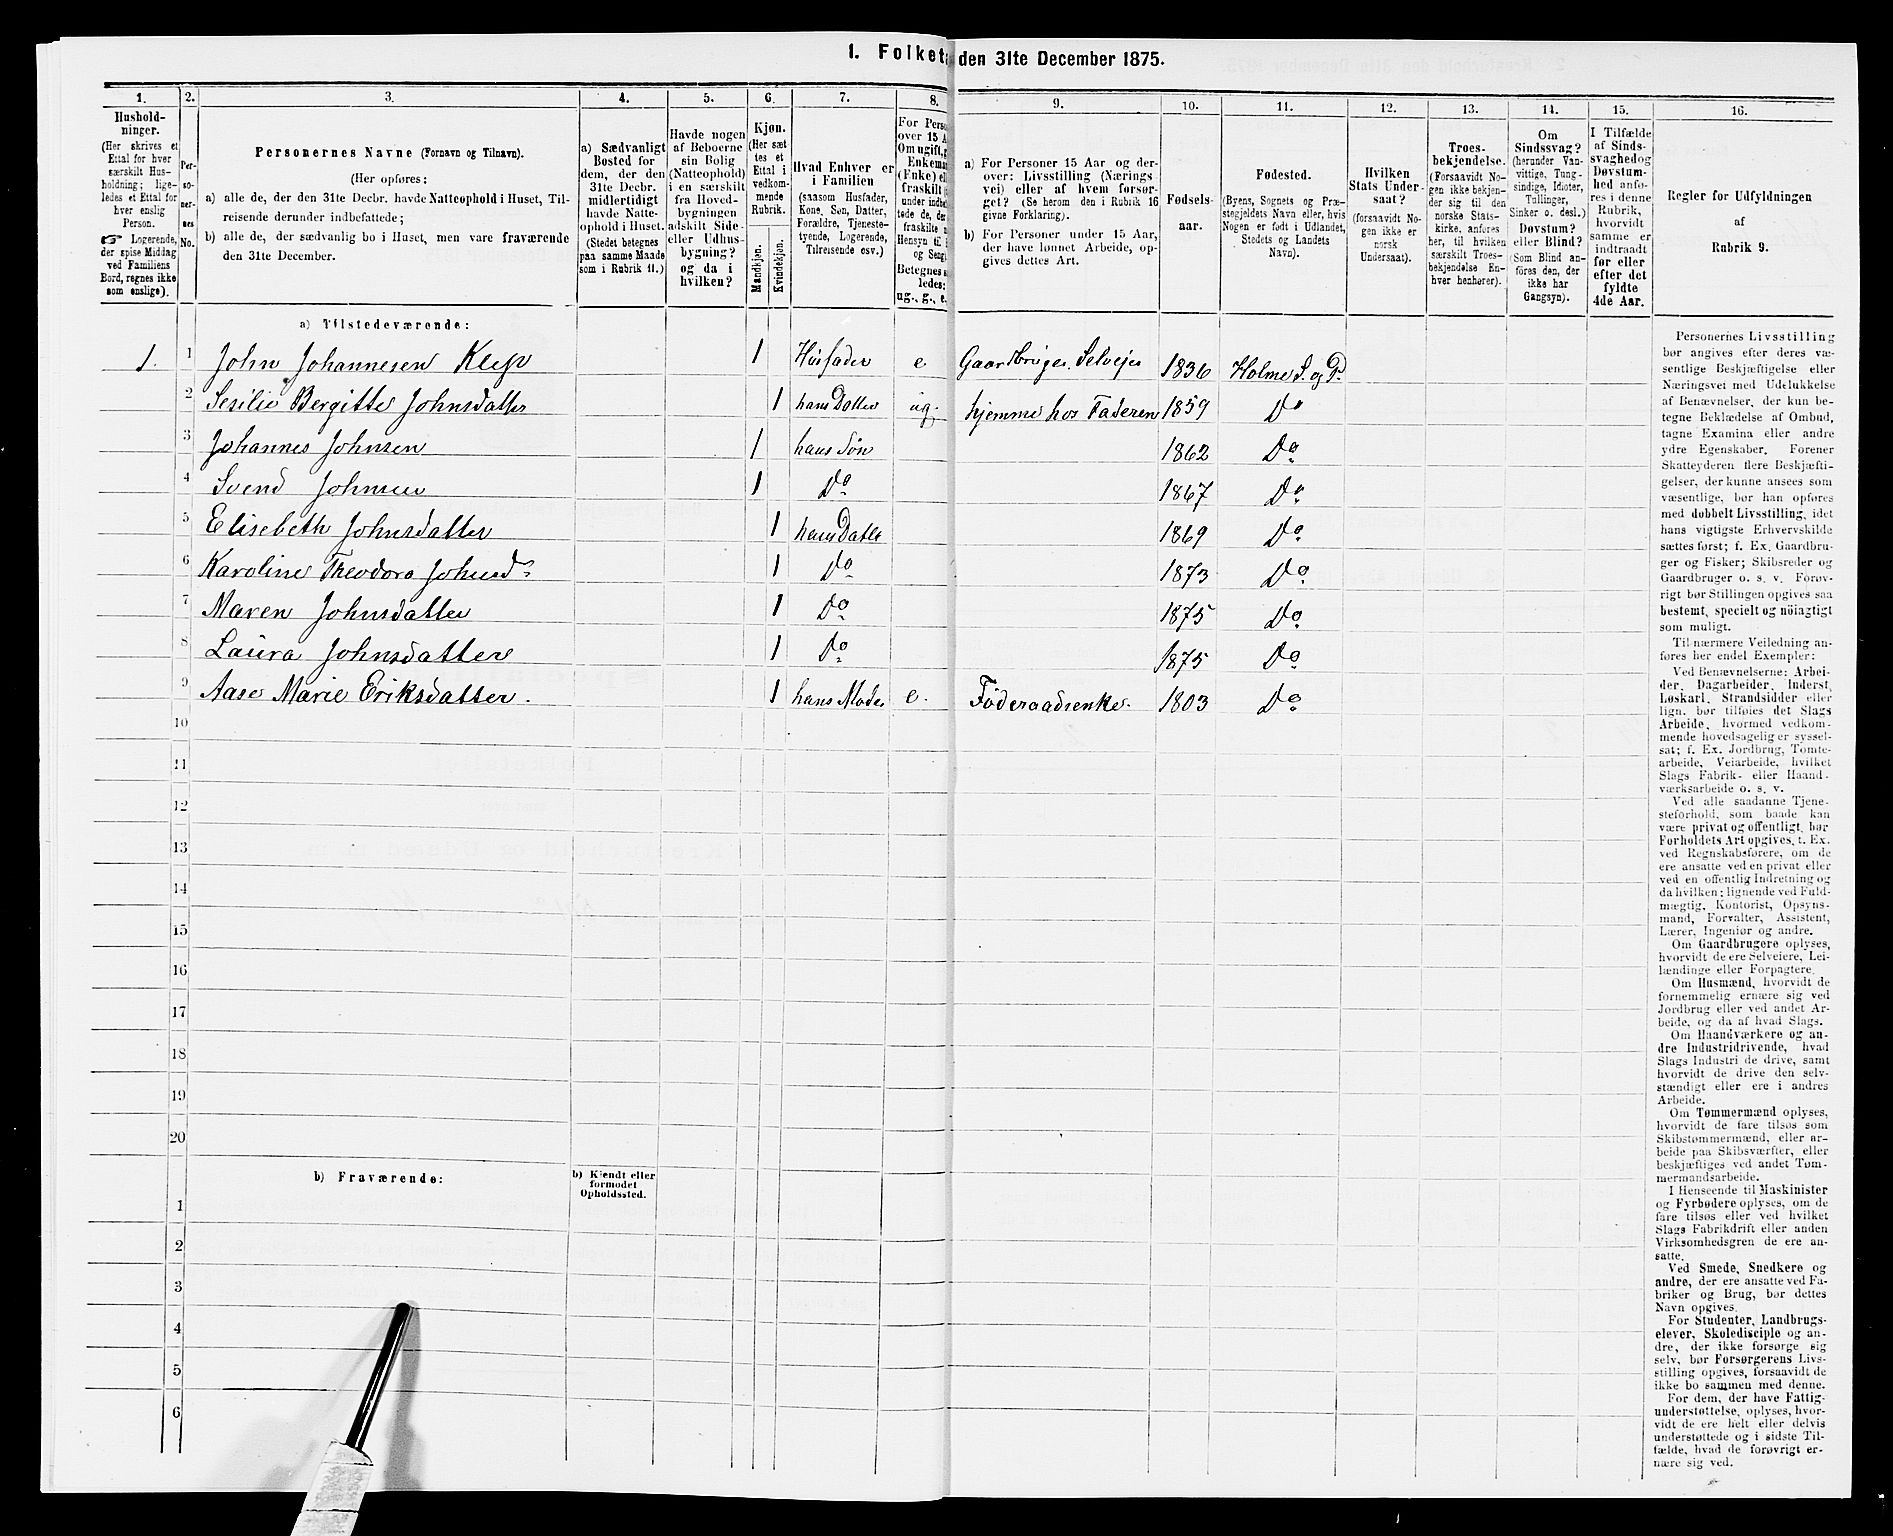 1. Folket
den 31te December 1875.
1.
Hushold-
ninger.
(Her skrives et
Ettal for hver
særskilt Hus-
holdning; lige-
ledes et Ettal for
hver enslig
Person.
☞ Logerende,
der spise Middag
ved Familiens
Bord, regnes ikke
som enslige).
2.
Per-
so-
ner-
nes
No.
3.
Personernes Navne (Fornavn og Tilnavn).
(Her opføres:
a) alle de, der den 31te Decbr. havde Natteophold i Huset, Til-
reisende derunder indbefattede;
b) alle de, der sædvanlig bo i Huset, men vare fraværende
den 31te December.
4.
a) Sædvanligt
Bosted for
dem, der den
31te Decbr.
midlertidigt
havde Natte-
ophold i Huset.
(Stedet betegnes
paa samme Maade
som i Rubrik 11.)
5.
Havde nogen
af Beboerne
sin Bolig
(Natteophold)
i en særskilt
fra Hoved-
bygningen
adskilt Side-
eller Udhus-
bygning?
og da i
hvilken?
6.
Kjøn.
(Her sæt
tes et
Ettal i
vedkom-
mende
Rubrik.
Mandkjøn.
Kvindekjøn.
7.
Hvad Enhver er
i Familien
(saasom Husfader,
Kone, Søn, Datter,
Forældre, Tjeneste-
tyende, Logerende,
Tilreisende osv.)
8.
For Perso
over 15 A
Om ugift, g
Enkema
(Enke) el
fraskilt
under indb
tede de, de
fraskilte
Hensyn til
og Seng
Betegnes s
ledes:
ug., g., e.
9.
a) For Personer 15 Aar og der-
over: Livsstilling (Nærings-
vei) eller af hvem forsør-
get? (Se herom den i Rubrik 16
givne Forklaring).
b) For Personer under 15 Aar,
der have lønnet Arbeide, op-
gives dettes Art.
10.
Fødsels-
aar.
11.
Fødested.
(Byens, Sognets og Præ-
stegjeldets Navn eller, hvis
Nogen er født i Udlandet,
Stedets og Landets
Navn).
12.
Hvilken
Stats Under-
saat?
(forsaavidt No-
gen ikke er
norsk
Undersaat).
13.
Troes-
bekjendelse.
(Forsaavidt No-
gen ikke bekjen-
der sig til den
norske Stats-
kirke, anføres
her, til hvilken
særskilt Troes-
bekjendelse En-
hver henhører).
14.
Om
Sindssvag?
(herunder Van-
vittige, Tung-
sindige, Idioter,
Tullinger,
Sinker o. desl.)
Døvstum?
eller Blind?
(Som Blind an-
føres den, der
ikke har
Gangsyn).
15.
I Tilfælde
af Sinds-
svaghed og
Døvstum-
hed anfø-
res i denne
Rubrik,
hvorvidt
samme er
indtraadt
før eller
efter det
fyldte
4de Aar.
16.
Regler for Udfyldningen
af
Rubrik 9.
a) Tilstedeværende:
1. 1 John Johannesen Klep 1 Husfader e Gaardbruger, Selveier 1836 Holme S. og P.
2 Sesilie Bergitte Johnsdatter 1 hans Datter ug. hjemme hos Faderen 1859 Do
3 Johannes Johnsen 1 hans Søn 1862 Do
4 Svend Johnsen 1 Do 1867 Do
5 Elisebeth Johnsdatter 1 hans Datter 1869 Do
6 Karoline Theodora Johnsd. 1 Do 1873 Do
7 Maren Johnsdatter 1 Do 1875 Do
8 Laura Johnsdatter 1 Do 1875 Do
9 Aase Marie Eriksdatter. 1 hans Moder e. Føderaadsenke. 1803 Do
10
11
12
13
14
15
16
17
18
19
20
b) Fraværende:
b) Kjendt eller
formodet
Opholdssted.
1
2
3
4
5
6
Personernes Livsstilling
bør angives efter deres væ-
sentlige Beskjæftigelse eller
Næringsvei med Udelukkelse
af Benævnelser, der kun be-
tegne Beklædelse af Ombud,
tagne Examina eller andre
ydre Egenskaber. Forener
Skatteyderen flere Beskjæfti-
gelser, der kunne ansees som
væsentlige, bør han opføres
med dobbelt Livsstilling, idet
hans vigtigste Erhvervskilde
sættes først; f. Ex. Gaardbru-
ger og Fisker; Skibsreder og
Gaardbruger o. s. v. Forøv-
rigt bør Stillingen opgives saa
bestemt, specielt og nøiagtigt
som muligt.
Til nærmere Veiledning an-
føres her endel Exempler:
Ved Benævnelserne: Arbei-
der, Dagarbeider, Inderst,
Løskarl, Strandsidder eller
lign. bør tilføies det Slags
Arbeide, hvormed vedkom-
mende hovedsagelig er syssel-
sat; f. Ex. Jordbrug, Tomte-
arbeide, Veiarbeide, hvilket
Slags Fabrik- eller Haand-
værksarbeide o. s. v.
Ved alle saadanne Tjene-
steforhold, som baade kan
være privat og offentligt, bør
Forholdets Art opgives, t. Ex.
ved Regnskabsførere, om de
ere ansatte ved en privat eller
ved en offentlig Indretning og
da hvilken; lignende ved Fuld-
mægtig, Kontorist, Opsyns-
mand, Forvalter, Assistent,
Lærer, Ingeniør og andre.
Om Gaardbrugere oplyses,
hvorvidt de ere Selveiere, Lei-
lændinge eller Forpagtere.
Om Husmænd, hvorvidt de
fornemmelig ernære sig ved
Jordbrug eller ved andet Ar-
beide, og da af hvad Slags.
Om Haandværkere og an-
dre Industridrivende, hvad
Slags Industri de drive, samt
hvorvidt de drive den selv-
stændigt eller ere i andres
Arbeide.
Om Tømmermænd oplyses,
hvorvidt de fare tilsøs som
Skibstømmermænd, eller ar-
beide paa Skibsværfter, eller
beskjæftiges ved andet Tøm-
mermandsarbeide.
I Henseende til Maskinister
og Fyrbødere oplyses, om de
fare tilsøs eller ved hvilket
Slags Fabrikdrift eller anden
Virksomhedsgren de ere an-
satte.
Ved Smede, Snedkere og
andre, der ere ansatte ved Fa-
briker og Brug, bør dettes
Navn opgives.
For Studenter, Landbrugs-
elever, Skoledisciple og an-
dre, der ikke forsørge sig
selv, bør Forsørgerens Livs-
stilling opgives, forsaavidt de
ikke bo sammen med denne.
For dem, der have Fattig-
understøttelse, oplyses, hvor-
vidt de ere helt eller delvis
understøttede og i sidste Til-
fælde, hvad de forøvrigt er-
nære sig ved.